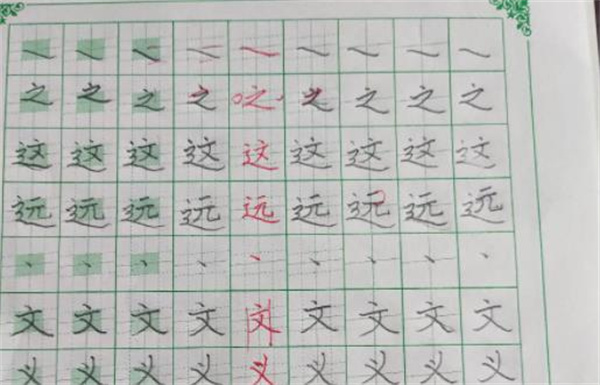 之之之之之之之之之
这这这这这这这这这
远远远远远远远远远
文文文文文文文文文
义义义义义义义义义